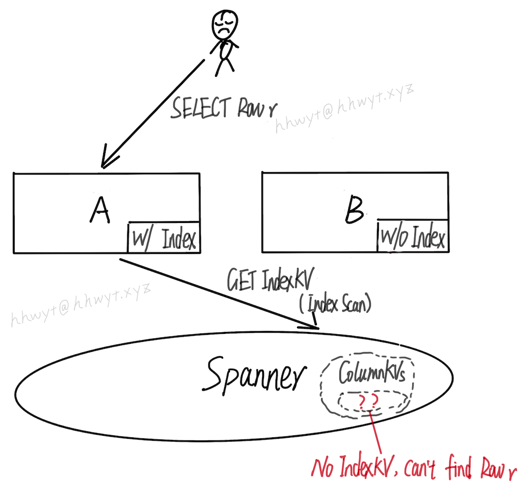 SELECT Row r
hhwyt@hhwyt.xyz
A
W/ Index
B
W/O Index
GET IndexKV
(Index Scan)
hhwyt@hhwyt.xyz
Spanner
ColumnKVs
??
No IndexKV, can't find Row r